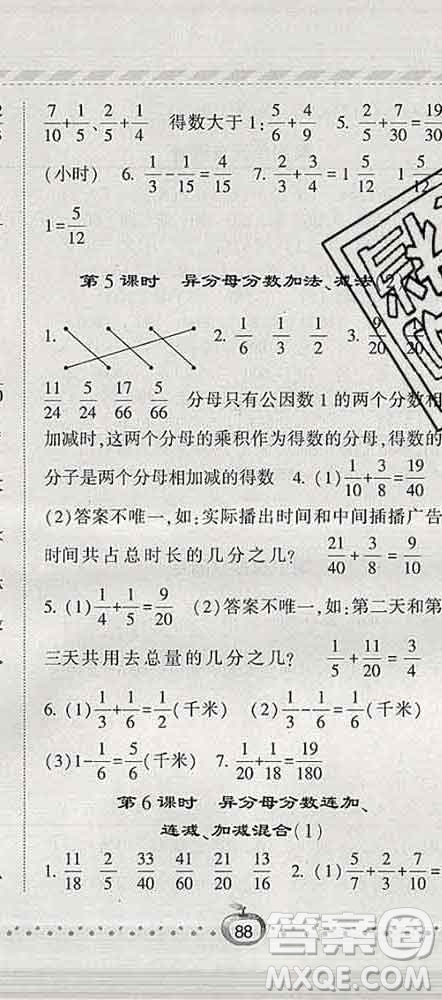 7/10+1/5、2/5+1/4 得数大于1:5/6+4/9 5. 2/5+7/30=19/30
(小时) 6. 1/3-1/15=4/15 7. 2/3+3/4=1 5/12 1 5/12
1=5/12
第5课时 异分母分数加法、减法
1. 2. 1/6 1/3 1/2 3. 9/20 /20
11/24 5/24 17/66 5/66 分母只有公因数1的两个分数相
加减时,这两个分母的乘积作为得数的分母,得数的
分子是两个分母相加减的得数 4. (1) 1/10+3/8=19/40
(2)答案不唯一,如:实际播出时间和中间插播广告
时间共占总时长的几分之几? 21/40+3/8=9/10
5. (1) 1/4+1/5=9/20 (2)答案不唯一,如:第二天和第
三天共用去总量的几分之几? 1/5+11/20=3/4
6. (1) 1/3+1/6=1/2(千米) (2) 1/3-1/6=1/6(千米)
(3)1-1/6=5/6(千米) 7. 1/20+1/18=19/180
第6课时 异分母分数连加、
连减、加减混合(1)
1. 11/18 5/18 33/40 41/40 23/20 13/20 2. (1) 5/7+2/3+7/10=
88
答案圈
MXQE.COM